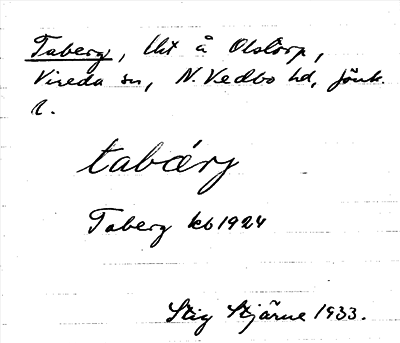 Taberg, lht å Olstorp,
Vireda sn, N. Vedbo hd, Jönk.
l.
tabærj
Taberg kb 1924
Stig Stjärne 1933.